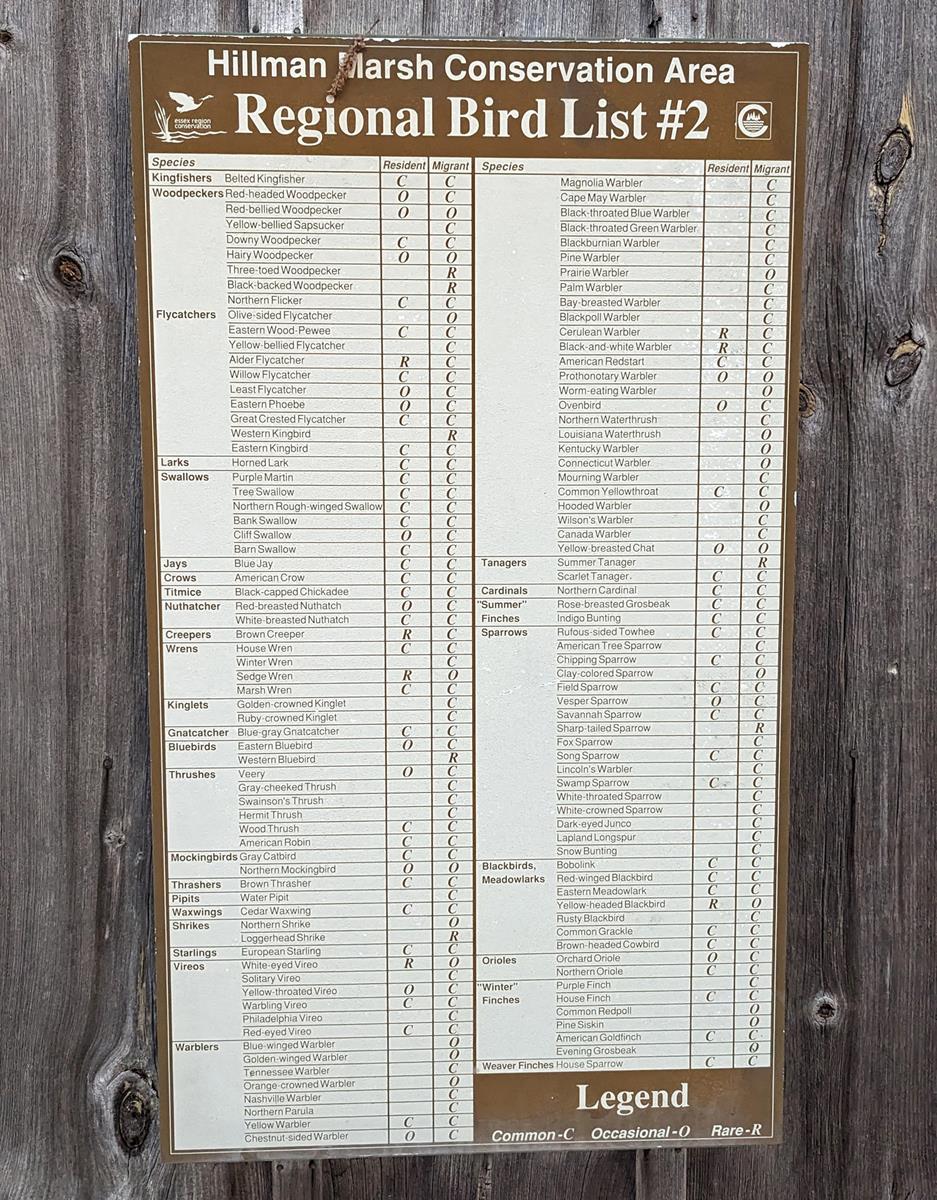 Hillman Marsh Conservation Area
essex region
conservation
Regional Bird List #2
Species Resident Migrant
Kingfishers Belted Kingfisher C C
Woodpeckers Red-headed Woodpecker O C
Red-bellied Woodpecker O O
Yellow-bellied Sapsucker C
Downy Woodpecker C C
Hairy Woodpecker O O
Three-toed Woodpecker R
Black-backed Woodpecker R
Northern Flicker C C
Flycatchers Olive-sided Flycatcher O
Eastern Wood-Pewee C C
Yellow-bellied Flycatcher C
Alder Flycatcher R C
Willow Flycatcher C C
Least Flycatcher O C
Eastern Phoebe O C
Great Crested Flycatcher C C
Western Kingbird R
Eastern Kingbird C C
Larks Horned Lark C C
Swallows Purple Martin C C
Tree Swallow C C
Northern Rough-winged Swallow C C
Bank Swallow C C
Cliff Swallow O C
Barn Swallow C C
Jays Blue Jay C C
Crows American Crow C C
Titmice Black-capped Chickadee C C
Nuthatcher Red-breasted Nuthatch O C
White-breasted Nuthatch C C
Creepers Brown Creeper R C
Wrens House Wren C C
Winter Wren C
Sedge Wren R O
Marsh Wren C C
Kinglets Golden-crowned Kinglet C
Ruby-crowned Kinglet C
Gnatcatcher Blue-gray Gnatcatcher C C
Bluebirds Eastern Bluebird O C
Western Bluebird R
Thrushes Veery O C
Gray-cheeked Thrush C
Swainson's Thrush C
Hermit Thrush C
Wood Thrush C C
American Robin C C
Mockingbirds Gray Catbird C C
Northern Mockingbird O O
Thrashers Brown Thrasher C C
Pipits Water Pipit C
Waxwings Cedar Waxwing C C
Shrikes Northern Shrike O
Loggerhead Shrike R
Starlings European Starling C C
Vireos White-eyed Vireo R O
Solitary Vireo C
Yellow-throated Vireo O C
Warbling Vireo C C
Philadelphia Vireo C
Red-eyed Vireo C C
Warblers Blue-winged Warbler O
Golden-winged Warbler O
Tennessee Warbler C
Orange-crowned Warbler O
Nashville Warbler C
Northern Parula C
Yellow Warbler C C
Chestnut-sided Warbler O C
Species Resident Migrant
Magnolia Warbler C
Cape May Warbler C
Black-throated Blue Warbler C
Black-throated Green Warbler C
Blackburnian Warbler C
Pine Warbler C
Prairie Warbler O
Palm Warbler C
Bay-breasted Warbler C
Blackpoll Warbler C
Cerulean Warbler R C
Black-and-white Warbler R C
American Redstart C C
Prothonotary Warbler O O
Worm-eating Warbler O
Ovenbird O C
Northern Waterthrush C
Louisiana Waterthrush O
Kentucky Warbler O
Connecticut Warbler O
Mourning Warbler C
Common Yellowthroat C C
Hooded Warbler O
Wilson's Warbler C
Canada Warbler C
Yellow-breasted Chat O O
Tanagers Summer Tanager R
Scarlet Tanager. C C
Cardinals Northern Cardinal C C
"Summer" Rose-breasted Grosbeak C C
Finches Indigo Bunting C C
Sparrows Rufous-sided Towhee C C
American Tree Sparrow C
Chipping Sparrow C C
Clay-colored Sparrow O
Field Sparrow C C
Vesper Sparrow O C
Savannah Sparrow C C
Sharp-tailed Sparrow R
Fox Sparrow C
Song Sparrow C C
Lincoln's Warbler C
Swamp Sparrow C C
White-throated Sparrow C
White-crowned Sparrow C
Dark-eyed Junco C
Lapland Longspur C
Snow Bunting C
Blackbirds, Bobolink C C
Meadowlarks Red-winged Blackbird C C
Eastern Meadowlark C C
Yellow-headed Blackbird R O
Rusty Blackbird C
Common Grackle C C
Brown-headed Cowbird C C
Orioles Orchard Oriole O C
Northern Oriole C C
"Winter" Purple Finch C
Finches House Finch C C
Common Redpoll O
Pine Siskin O
American Goldfinch C C
Evening Grosbeak O
Weaver Finches House Sparrow C C
Legend
Common-C Occasional-O Rare-R